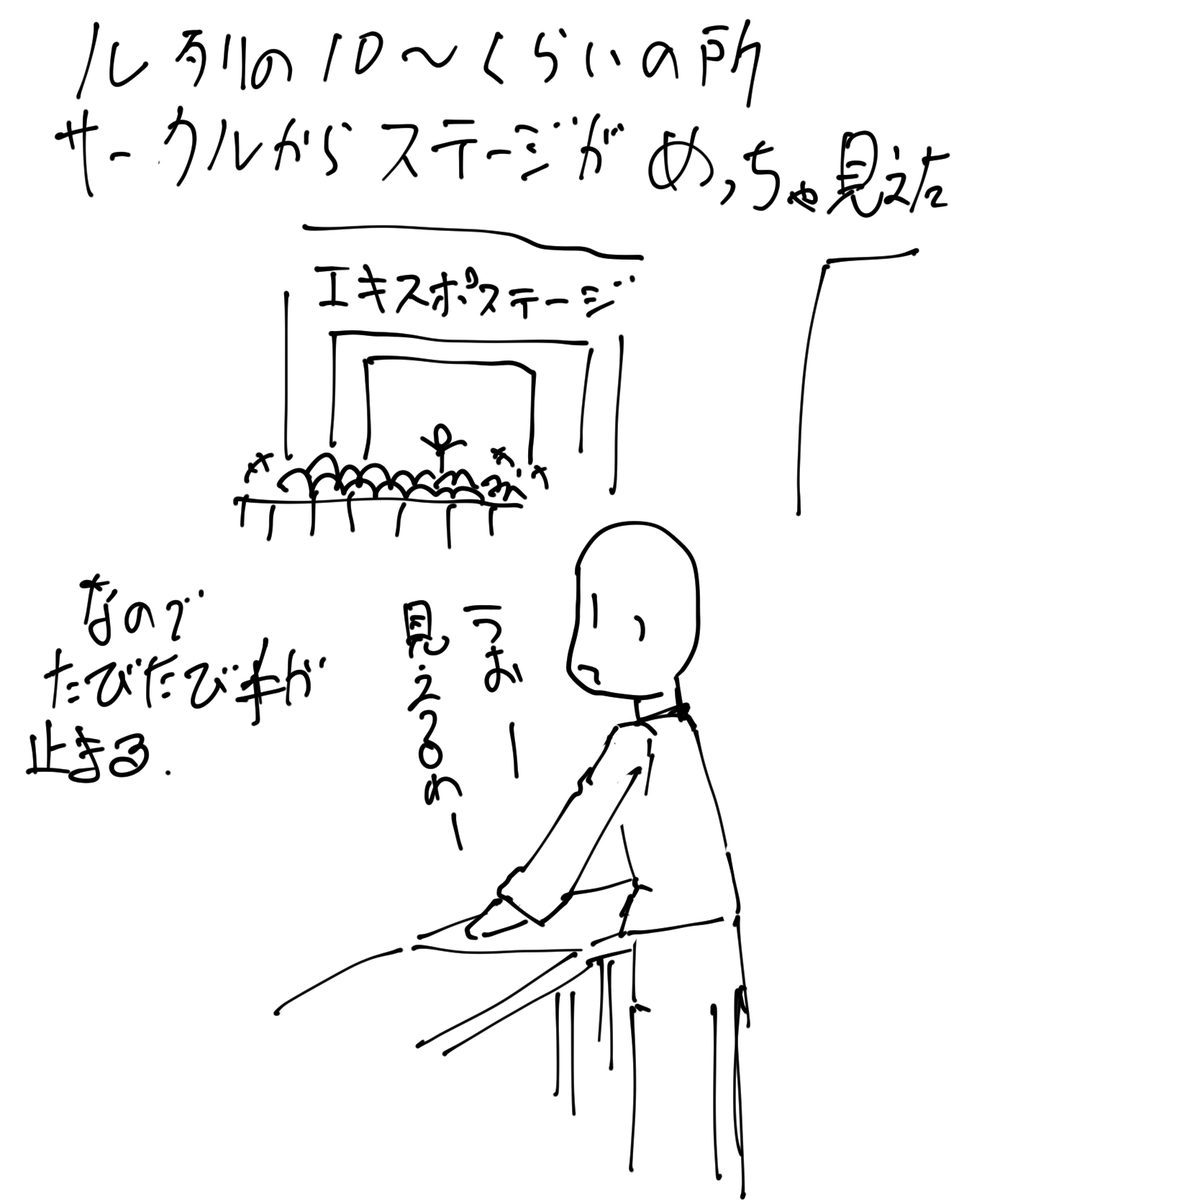 ル列の10〜くらいの所
サークルからステージがめっちゃ見えた
エキスポステージ
うおー
見えるわー
なので
たびたび手が
止まる.